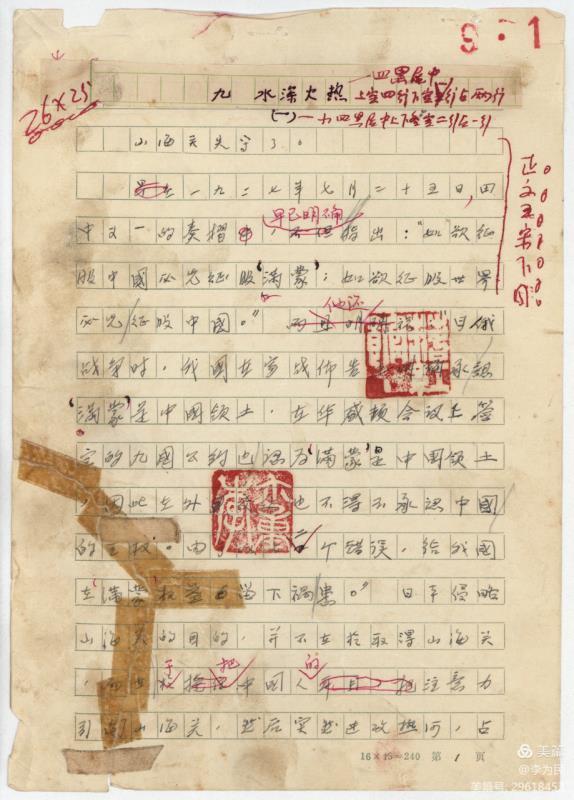 9·1
26×25
九 水深火热
四黑居中
上空四行下空 行占两行
(一)
四黑居中上下各空二行占一行
正文五宋
山海关失守了。
一九二七年七月二十五日,田
中义一的奏摺中,早已明确指出:“如欲征
服中國必先征服‘满蒙’;如欲征服世界
必先征服中國。”他还 日俄
战争时,我國在宣战佈告 承認
‘满蒙’是中國领土,在华盛頓会议上签
定的九國公约也認为‘满蒙’是中國领土
,因此在外 也不得不承認中國
的主权。由于 个错误,给我國
在‘满蒙’权益留下祸患。”日本侵略
山海关的目的,并不在於取得山海关
,而 于 把中國人的注意力
引向山海关,然后突然进攻热河,占
16×15=240 第 1 页
美篇
@李为民
美篇号: 2961845